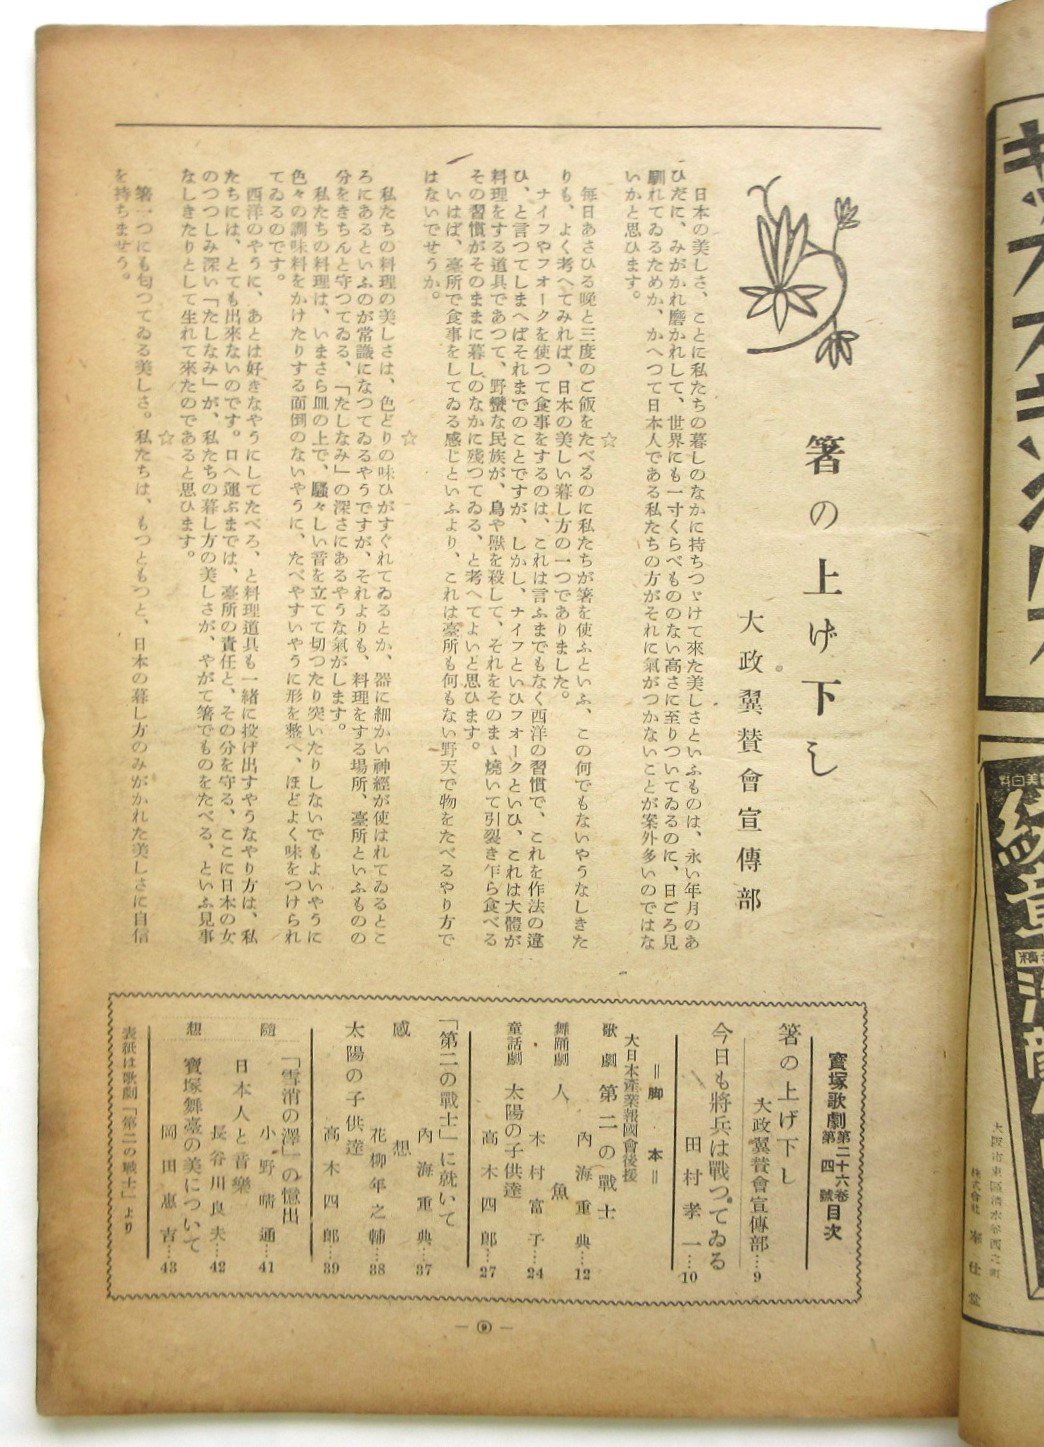 箸の上げ下し
大政翼賛會宣傳部
日本の美しさ、ことに私たちの暮しのなかに持ちつゞけて來た美しさといふものは、永い年月のあ
ひだに、みがかれ磨かれして、世界にも一寸くらべもののない高さに至りついてゐるのに、日ごろ見
馴れてゐるためか、かへつて日本人である私たちの方がそれに氣がつかないことが案外多いのではな
いかと思ひます。
☆
毎日あさひる晩と三度のご飯をたべるのに私たちが箸を使ふといふ、この何でもないやうなしきた
りも、よく考へてみれば、日本の美しい暮し方の一つでありました。
ナイフやフオークを使つて食事をするのは、これは言ふまでもなく西洋の習慣で、これを作法の違
ひ、と言つてしまへばそれまでのことですが、しかし、ナイフといひフオークといひ、これは大體が
料理をする道具であつて、野蠻な民族が、鳥や獸を殺して、それをそのまゝ燒いて引裂き乍ら食べる
その習慣がそのままに暮しのなかに殘つてゐる、と考へてよいと思ひます。
いはば、臺所で食事をしてゐる感じといふより、これは臺所も何もない野天で物をたべるやり方で
はないでせうか。
☆
私たちの料理の美しさは、色どりの味ひがすぐれてゐるとか、器に細かい神經が使はれてゐるとこ
ろにあるといふのが常識になつてゐるやうですが、それよりも、料理をする場所、臺所といふものの
分をきちんと守つてゐる、「たしなみ」の深さにあるやうな氣がします。
私たちの料理は、いまさら皿の上で、騷々しい音を立てて切つたり突いたりしないでもよいやうに
色々の調味料をかけたりする面倒のないやうに、たべやすいやうに形を整へ、ほどよく味をつけられ
てゐるのです。
西洋のやうに、あとは好きなやうにしてたべろ、と料理道具も一緒に投げ出すやうなやり方は、私
たちには、とても出來ないのです。口へ運ぶまでは、臺所の責任と、その分を守る、ここに日本の女
のつつしみ深い「たしなみ」が、私たちの暮し方の美しさが、やがて箸でものをたべる、といふ見事
なしきたりとして生れて來たのであると思ひます。
☆
箸一つにも匂つてゐる美しさ。私たちは、もつともつと、日本の暮し方のみがかれた美しさに自信
を持ちませう。
寶塚歌劇第二十六卷第四號目次
箸の上げ下し
大政翼賛會宣傳部…9
今日も將兵は戰つてゐる
田村孝一…10
＝脚本＝
大日本產業報國會後援
歌劇 第二の戰士
內海重典…12
舞踊劇 人魚
木村富子…24
童話劇 太陽の子供達
高木四郎…27
「第二の戰士」に就いて
內海重典…37
感想
花柳年之輔…38
太陽の子供達
高木四郎…39
隨想
「雪消の澤」の憶出
小野晴通…41
日本人と音樂
長谷川良夫…42
寶塚舞臺の美について
岡田惠吉…43
表紙は歌劇「第二の戰士」より
— 9 —
大阪市東區淸水谷西之町
株式會社